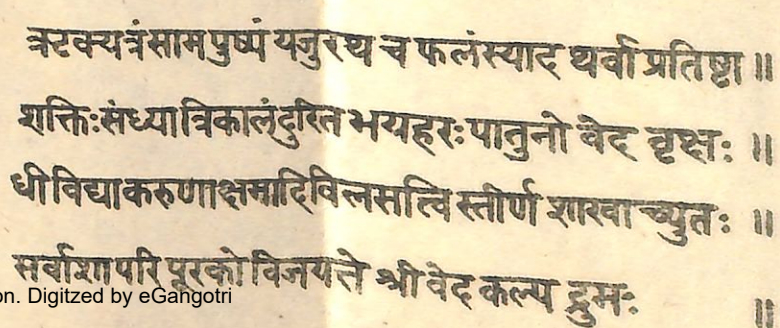 ऋटक्यत्रंसाम पुष्पं यजुरथ च फलंस्याद थर्वा प्रतिष्ठा ॥
शक्तिःसंध्या त्रिकालंदुरित भयहरःपातुनो वेद वृक्षः ॥
धी विद्याकरुणाक्षमादिविलसत्वि स्तीर्ण शाखा च्युतः ॥
सर्वाशापरि पूरको विजयते श्री वेद कल्प द्रुमः ॥
on. Digitzed by eGangotri